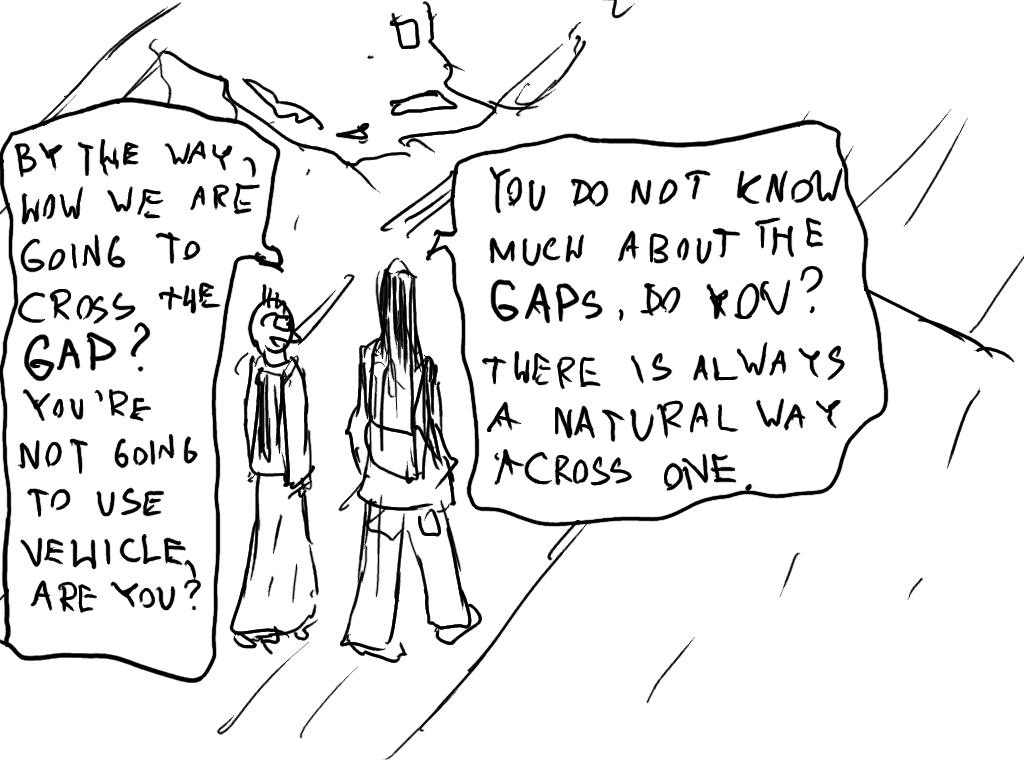 BY THE WAY,
HOW WE ARE
GOING TO
CROSS THE
GAP?
YOU'RE
NOT GOING
TO USE
VEHICLE,
ARE YOU?
YOU DO NOT KNOW
MUCH ABOUT THE
GAPS, DO YOU?
THERE IS ALWAYS
A NATURAL WAY
ACROSS ONE.